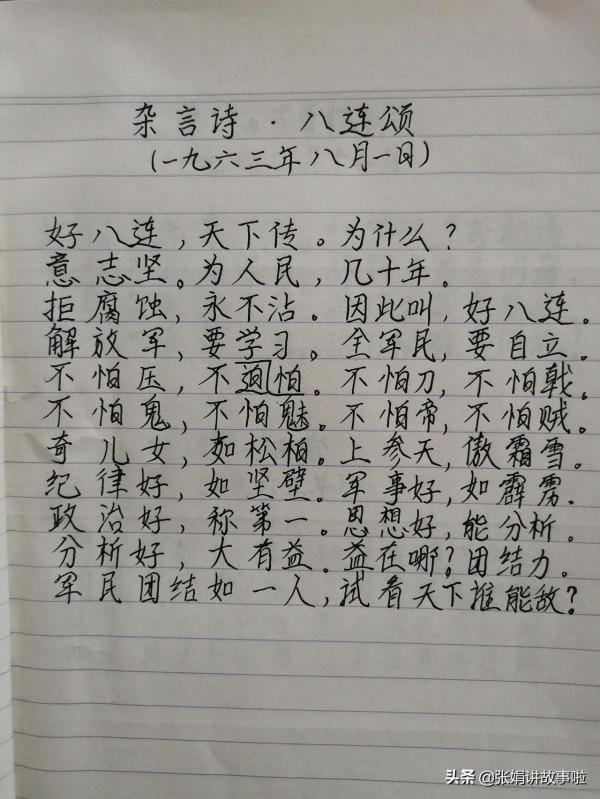 杂言诗·八连颂
(一九六三年八月一日)
好八连，天下传。为什么？
意志坚。为人民，几十年。
拒腐蚀，永不沾。因此叫，好八连。
解放军，要学习。全军民，要自立。
不怕压，不迫怕。不怕刀，不怕戟。
不怕鬼，不怕魅。不怕帝，不怕贼。
奇儿女，如松柏。上参天，傲霜雪。
纪律好，如坚壁。军事好，如霹雳.
政治好，称第一。思想好，能分析。
分析好，大有益。益在哪？团结力。
军民团结如一人，试看天下谁能敌？
头条 @张娟讲故事啦